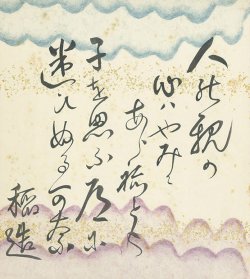 人の親の
心はやみに
あらねとも
子を思ふ道に
迷ひぬる可奈
稲造